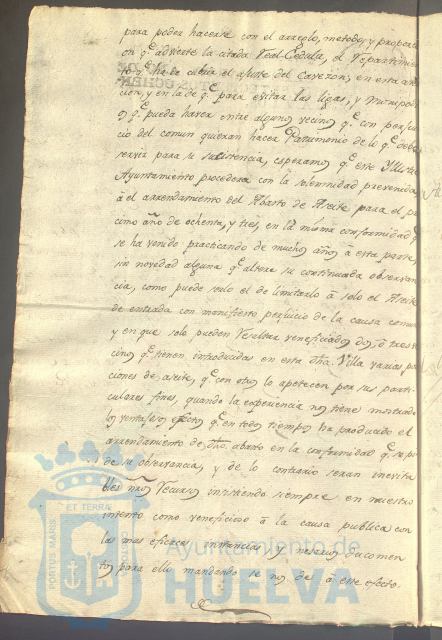 para poder hacerse con el arreglo, metodo, y proporci
on qe. advierte la citada Real Cedula, el Repartimien
to qe. ha de cubrir el ajuste del Cavezon; en esta aten
cion, y en la de qe. para evitar las ligas, y
qe. pueda haver entre algunos vecinos qe. con perjui
cio del comun quieran hacer Patrimonio de lo qe. debe
servir para su subsistencia, esperamos qe. este Yllustre
Ayuntamiento procedera con la solemnidad prevenida
á el arrendamiento del Abasto de Aseite para el pro
cimo año de ochenta, y tres, en la misma conformidad qe.
se ha venido practicando de muchos años á esta parte,
sin novedad alguna qe. altere su continuada observan
cia, como puede serlo el de limitarlo á solo el Aseite
de entrada con manifiesto perjuicio de la causa comun
y en que solo pueden resultar veneficiados dos, ó tres ve
cinos qe. tienen introducidas en esta dha. Villa varias por
ciones de aseite, qe. con otros lo apetecen por sus parti
culares fines, quando la experiencia nos tiene mostrado
los ventajosos efectos qe. en todos tiempos ha producido el
arrendamiento de dho. abasto en la conformidad qe. se pi
de su observancia, y de lo contrario seran inevita
bles nros. Recursos insistiendo siempre en nuestro
intento como veneficioso á la causa publica con
las mas eficaces instancias, y nesesarios documen
tos para ello mandando se nos dé á este efecto.
PORTUS MARIS
ET TERRÆ
CUSTODIA
Ayuntamiento de
HUELVA